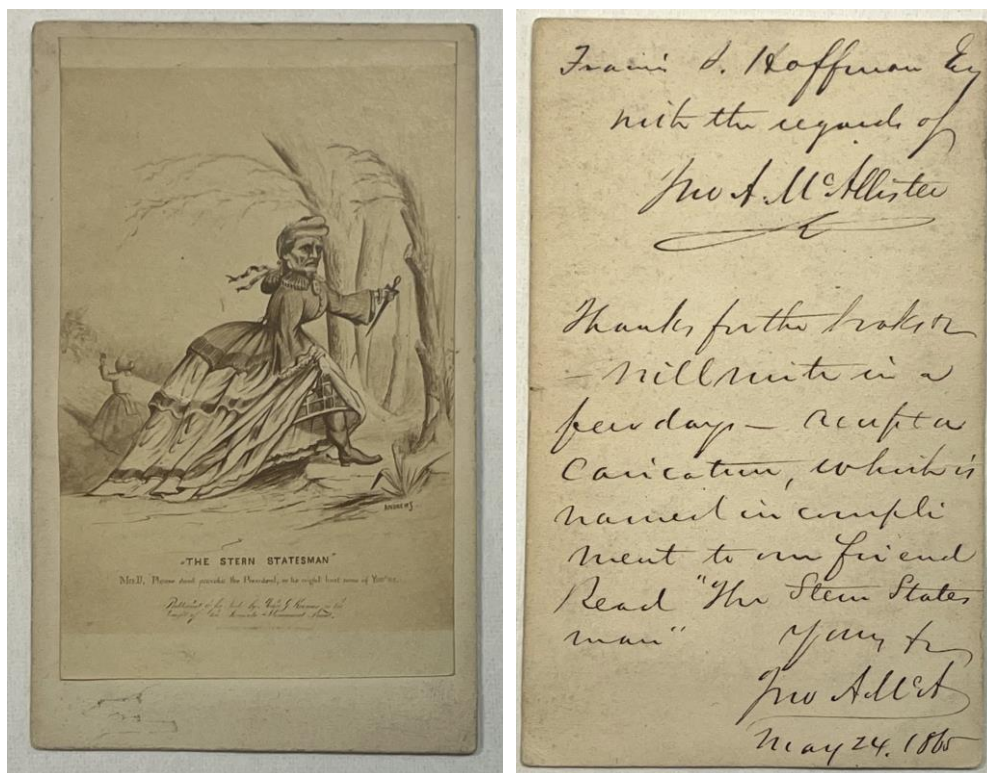 ANDREWS
"THE STERN STATESMAN"
Mrs. D. Please dont provoke the President, or he might hurt some of You "us.
Hoffman
with the regards of
Jno A. McAllister
Thanks for the
– will write in a
few days –
Caricature, which is
named in compli
ment to our friend
Read "The Stern States
man"
Jno A McA
May 24. 1865